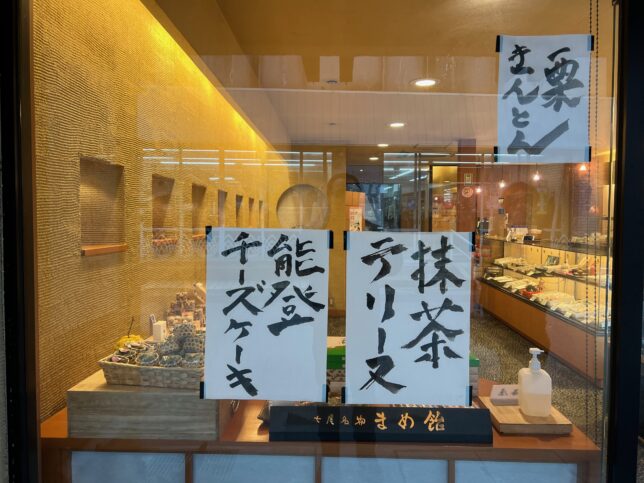 栗
きんとん
抹茶
テリーヌ
能登
チーズケーキ
まめ飴